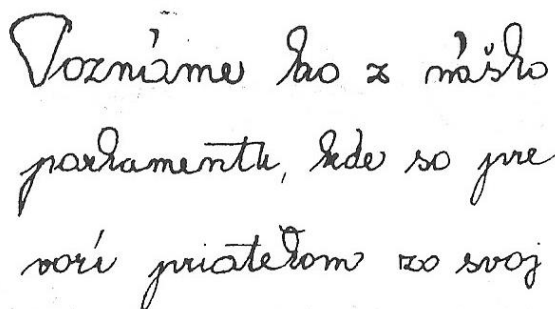 Poznáme ho z nášho
parlamentu, kde sa pre
vorí priateľom zo svoj